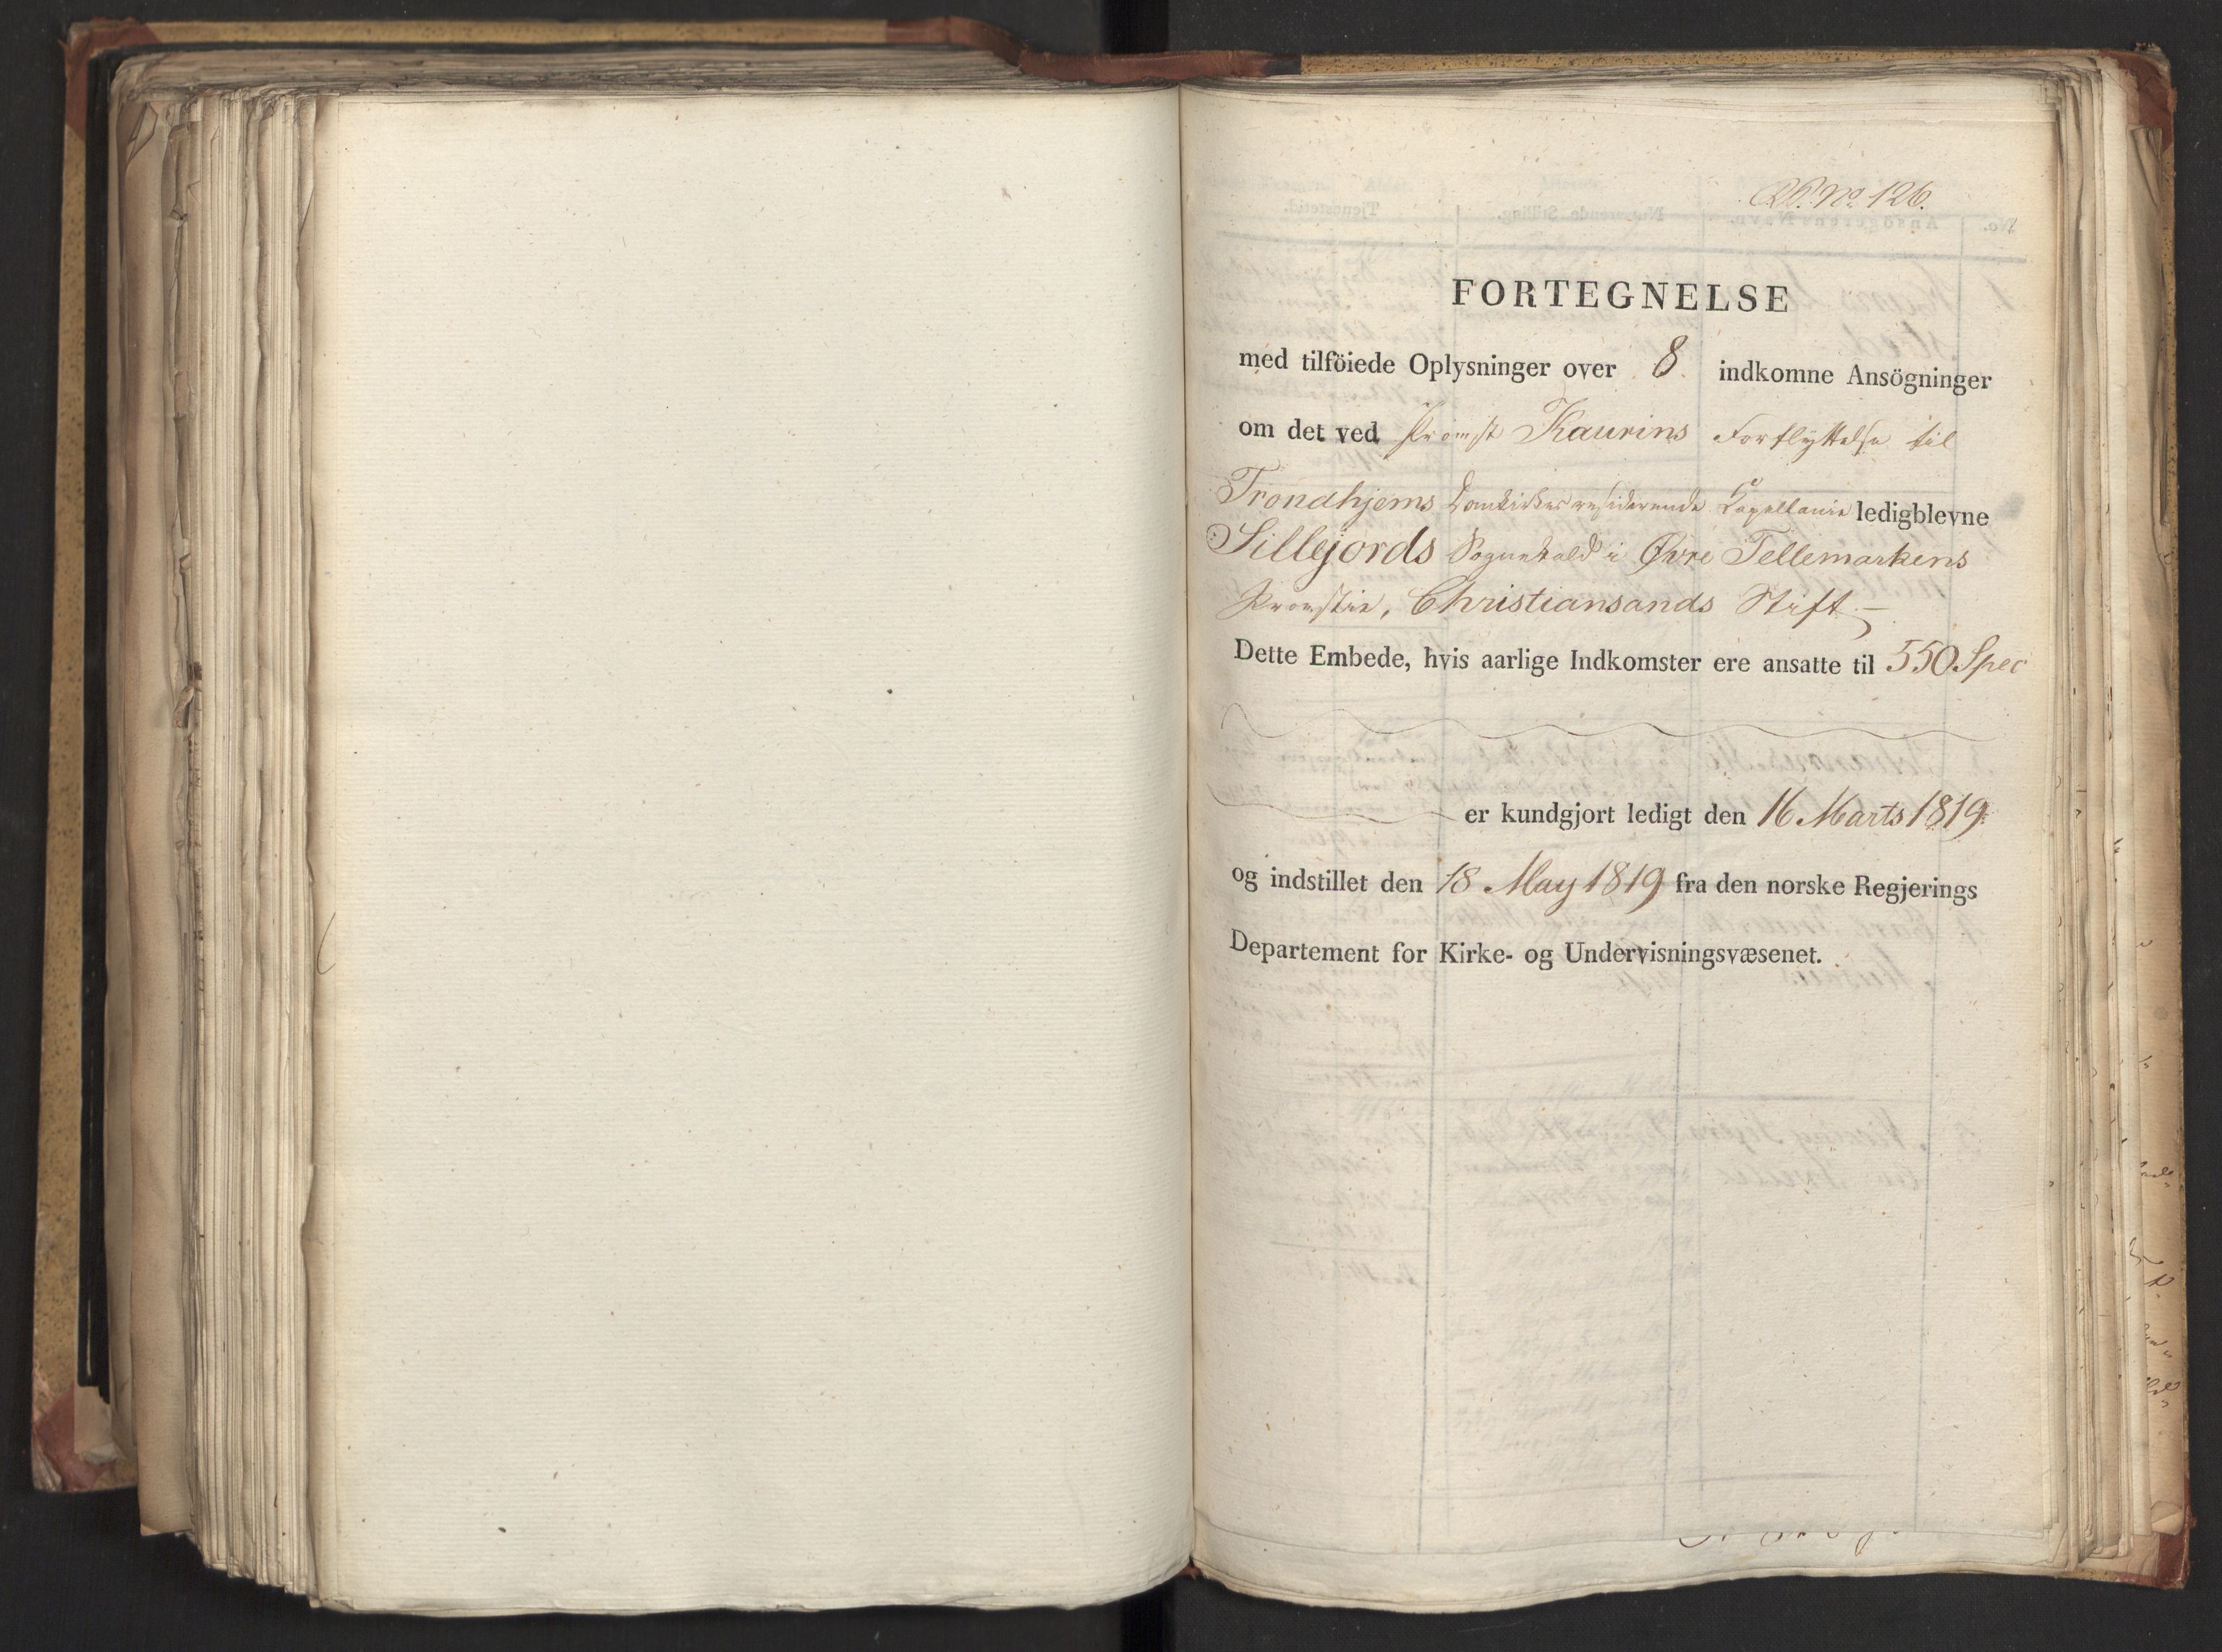 No 126.
FORTEGNELSE
med tilföiede Oplysninger over 8 indkomne Ansögninger
om det ved Provst Kaurins Forflyttelse til
Trondhjems Domkirkes residerende Capellanie ledigblevne
Sillejords Sognekald i Øvre Tellemarkens
Provstie, Christiansands Stift.—
Dette Embede, hvis aarlige Indkomster ere ansatte til 550 Spec
er kundgjort ledigt den 16 Marts 1819
og indstillet den 18 May 1819 fra den norske Regjerings
Departement for Kirke- og Undervisningsvæsenet.